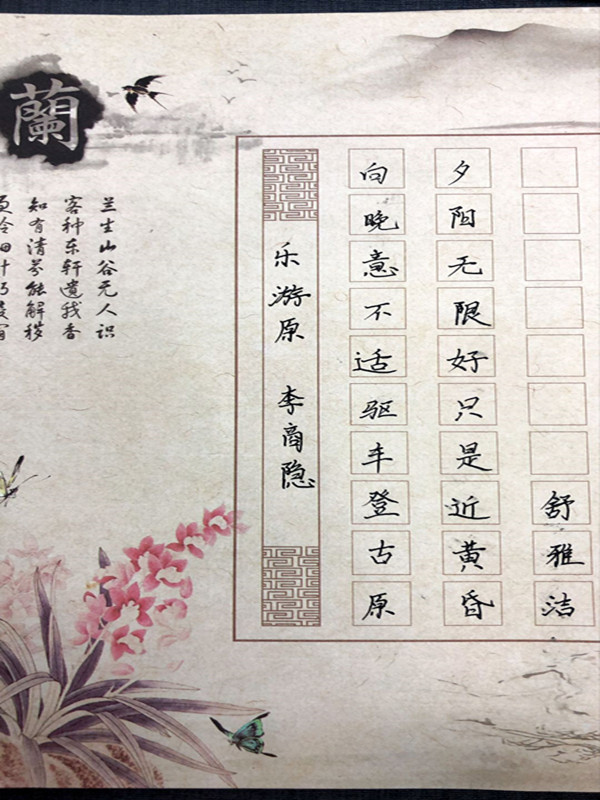 蘭
兰生山谷无人识
客种东轩遗我香
知有清芬能解秽
乐游原 李商隐
向晚意不适驱车登古原
夕阳无限好只是近黄昏
舒雅洁